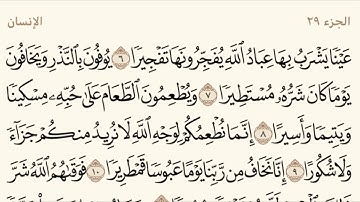 الجزء ٢٩
الإنسان
عَيْنًا يَشْرَبُ بِهَا عِبَادُ ٱللَّهِ يُفَجِّرُونَهَا تَفْجِيرًا ٦ يُوفُونَ بِٱلنَّذْرِ وَيَخَافُونَ
يَوْمًا كَانَ شَرُّهُۥ مُسْتَطِيرًا ٧ وَيُطْعِمُونَ ٱلطَّعَامَ عَلَىٰ حُبِّهِۦ مِسْكِينًا
وَيَتِيمًا وَأَسِيرًا ٨ إِنَّمَا نُطْعِمُكُمْ لِوَجْهِ ٱللَّهِ لَا نُرِيدُ مِنكُمْ جَزَآءً
وَلَا شُكُورًا ٩ إِنَّا نَخَافُ مِن رَّبِّنَا يَوْمًا عَبُوسًا قَمْطَرِيرًا ١٠ فَوَقَىٰهُمُ ٱللَّهُ شَرَّ